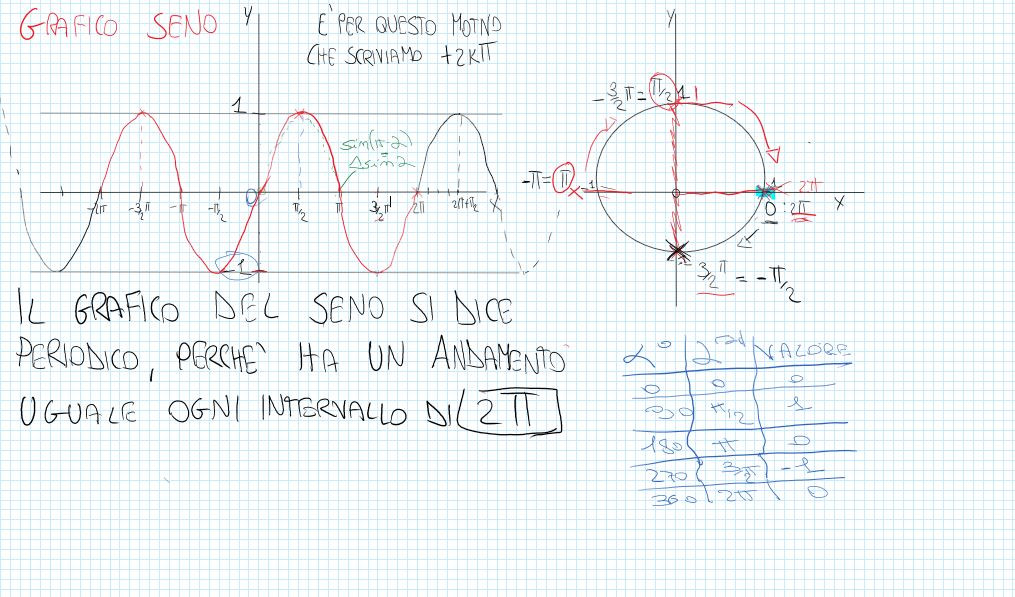 GRAFICO SENO
Y
È PER QUESTO MOTIVO
CHE SCRIVIAMO +2Kπ
1
sin(π-2)
sin 2
-2π -3/2π -π -π/2 0 π/2 π 3/2π 2π 2π+π/2 X
-1
Y
-3/2π = π/2 1
-π = π -1
1 2π
0 : 2π X
-1
3/2π = -π/2
IL GRAFICO DEL SENO SI DICE
PERIODICO, PERCHÈ HA UN ANDAMENTO
UGUALE OGNI INTERVALLO DI 2π
α° α rad VALORE
0 0 0
90 π/2 1
180 π 0
270 3/2π -1
360 2π 0